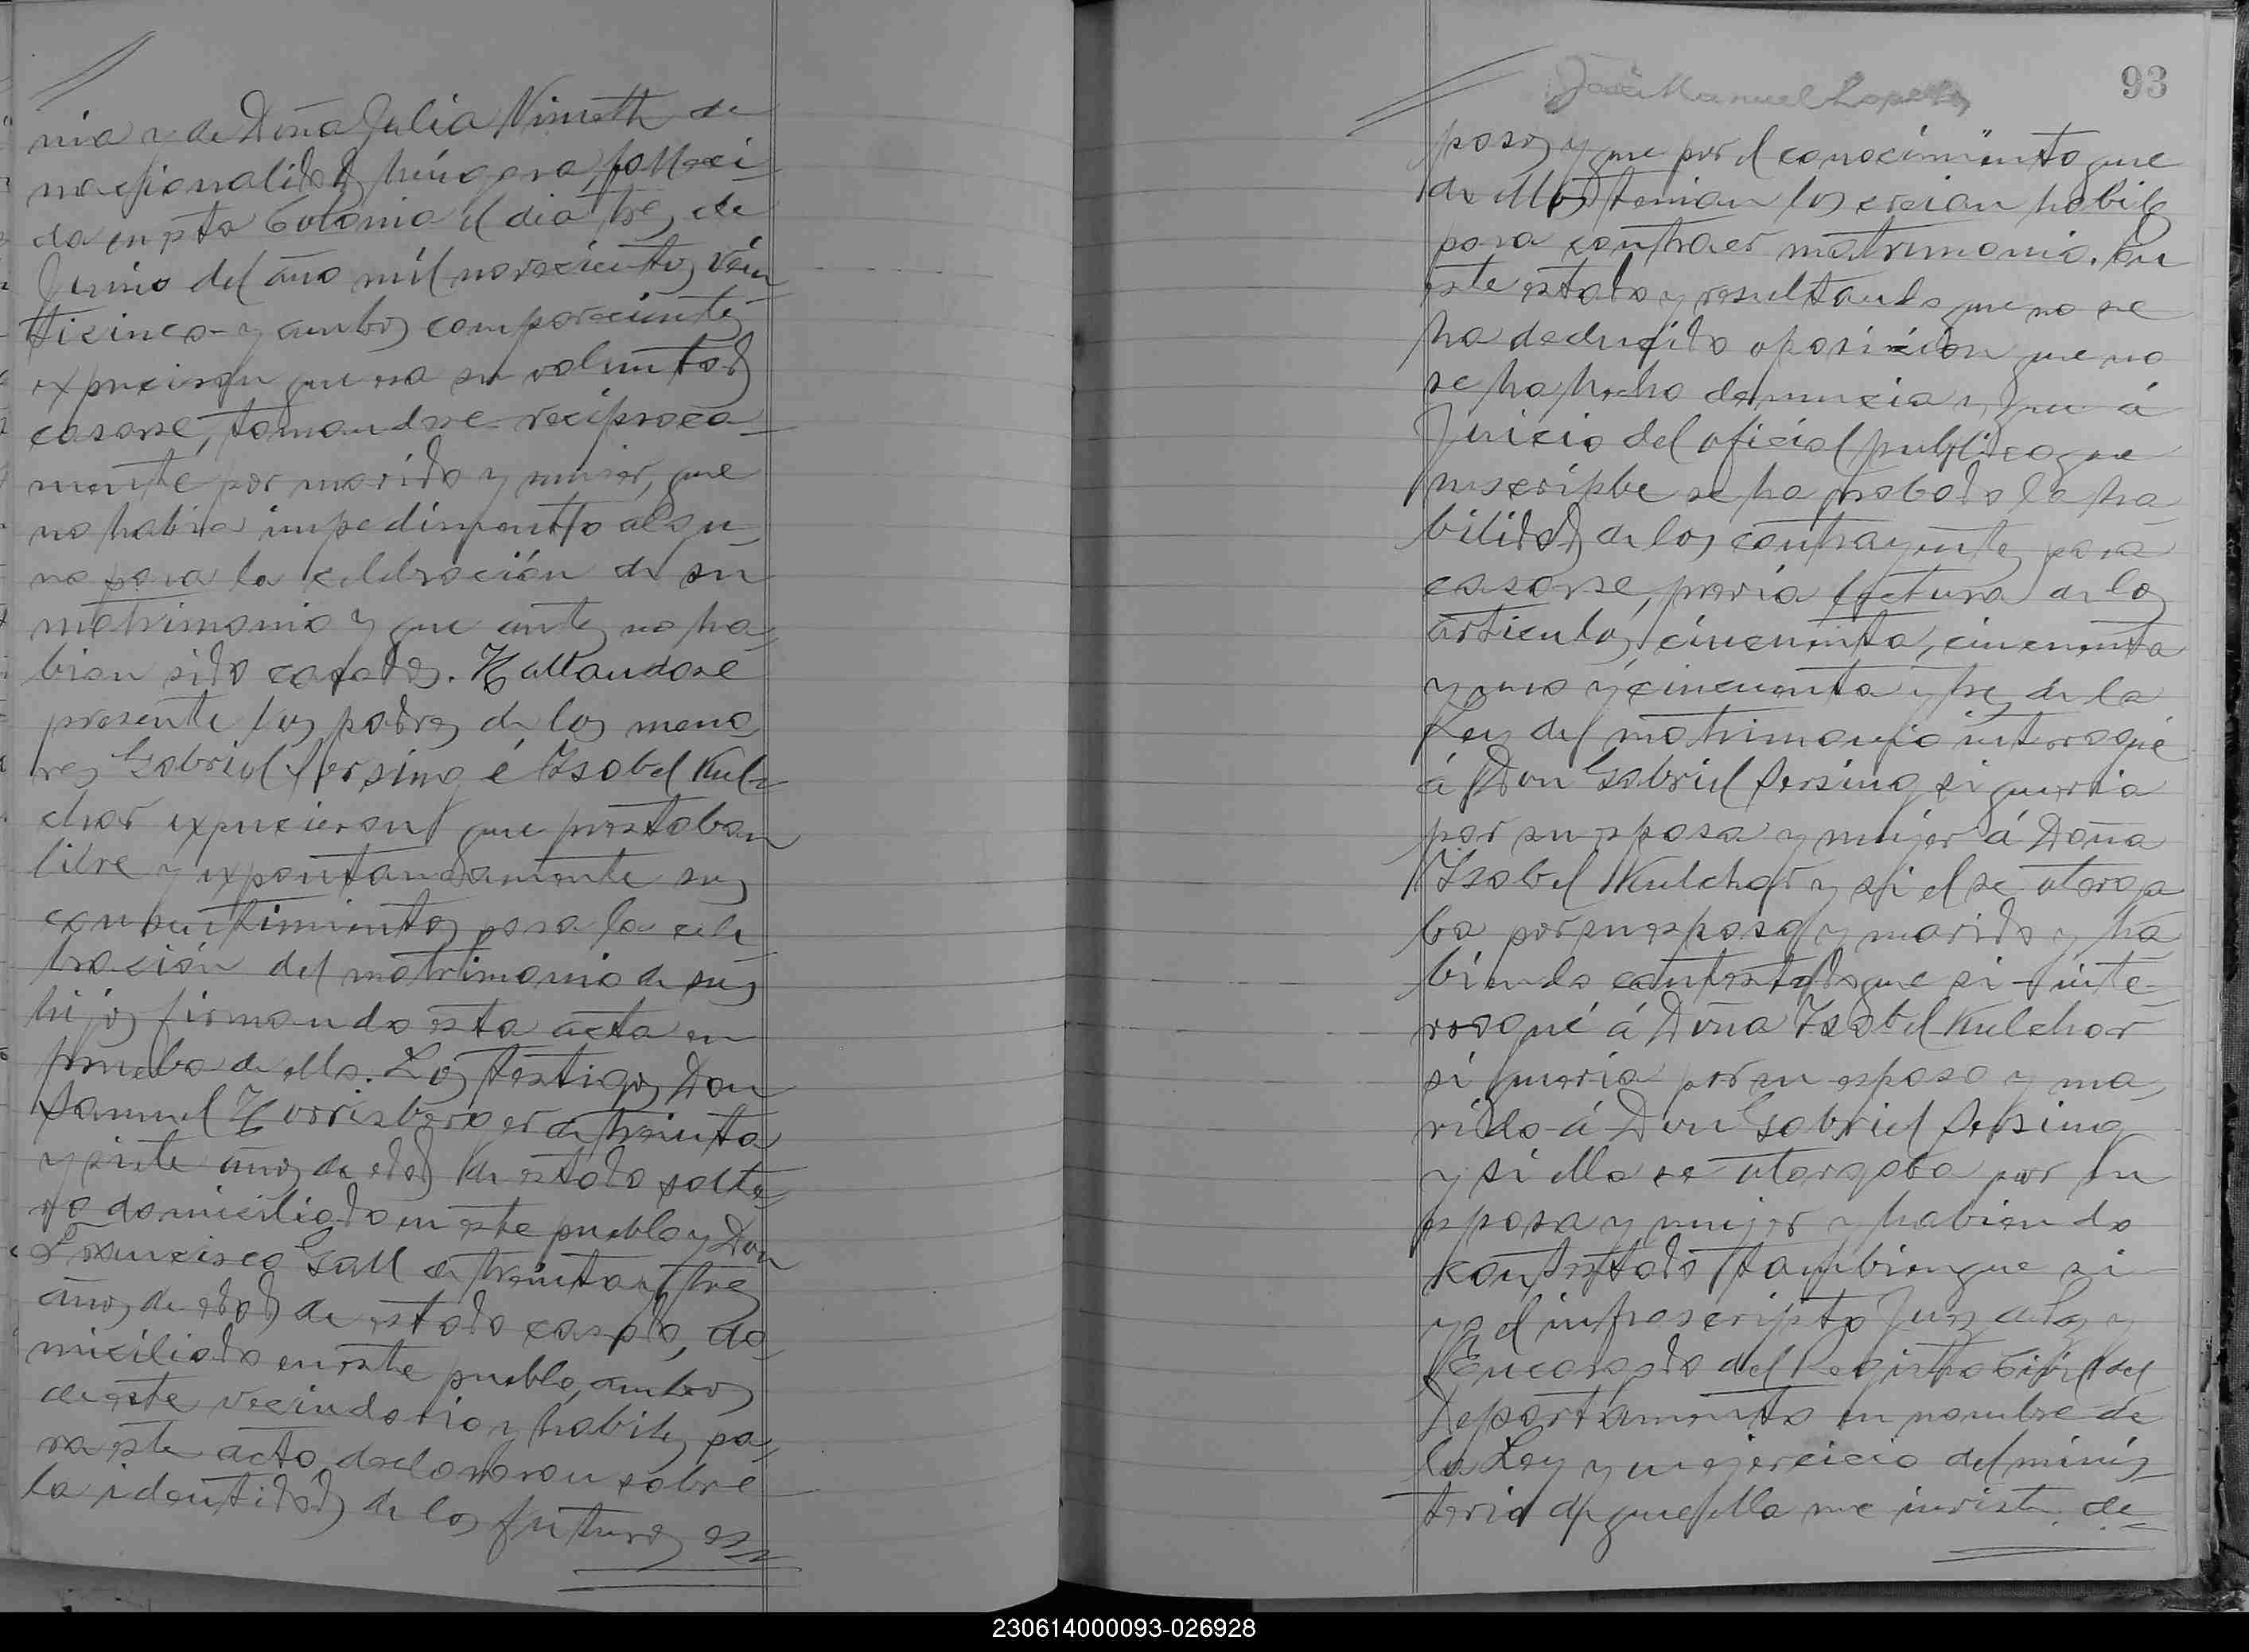 nia y de Doña Julia Nimeth de
nacionalidad húngara, falleci-
da en esta Colonia el dia tres de
Junio del año mil novecientos vein-
ticinco - y ambos comparecientes
expucieron que era su voluntad
casarse, tomandose reciproca-
mente por marido y mujer, que
no habia impedimento algu-
no para la celebración de su
matrimonio y que antes no ha-
bian sido casados. Hallandose
presente los padres de los meno-
res Gabriel Persing é Ysabel Kul-
char expucieron que prestaban
libre y expontaneamente sus
consentimientos para la cele-
bración del matrimonio de sus
hijos firmando esta acta en
prueba de ello. Los testigos Don
Samuel Horrisberger de treinta
y siete años de edad de estado solte-
ro domiciliado en este pueblo y Don
Francisco Gall de treinta y tres
años de edad de estado casado, do-
miciliado en este pueblo, ambos
de este vecindario y habiles pa-
ra este acto declararon sobre
la identidad de los futuros es-
93
José Manuel Lopez
posos y que por el conocimiento que
de ellos tenian los creian habiles
para contraer matrimonio. En
este estado y resultando que no se
ha deducido oposición que no
se ha hecho denuncia y que á
Juicio del oficial publico que
suscripbe se ha probado la ha-
bilidad de los contrayentes para
casarse, previa lectura de los
articulos, cincuenta, cincuenta
y uno y cincuenta y tres de la
Ley del matrimonio interrogué
á Don Gabriel Persing si queria
por su esposa y mujer á Doña
Ysabel Kulchar y si el se otorga
ba por su esposo y marido y ha
biendo contestado que si - inte-
rrogué á Doña Ysabel Kulchar
si queria por su esposo y ma-
rido á Don Gabriel Persing
y si ella se otorgaba por su
esposa y mujer y habiendo
contestado tambien que si
yo el infrascripto Juez de Paz y
Encargado del Registro Civil del
Departamento en nombre de
la Ley y en ejercicio del minis-
terio de que ella me inviste de-
230614000093-026928